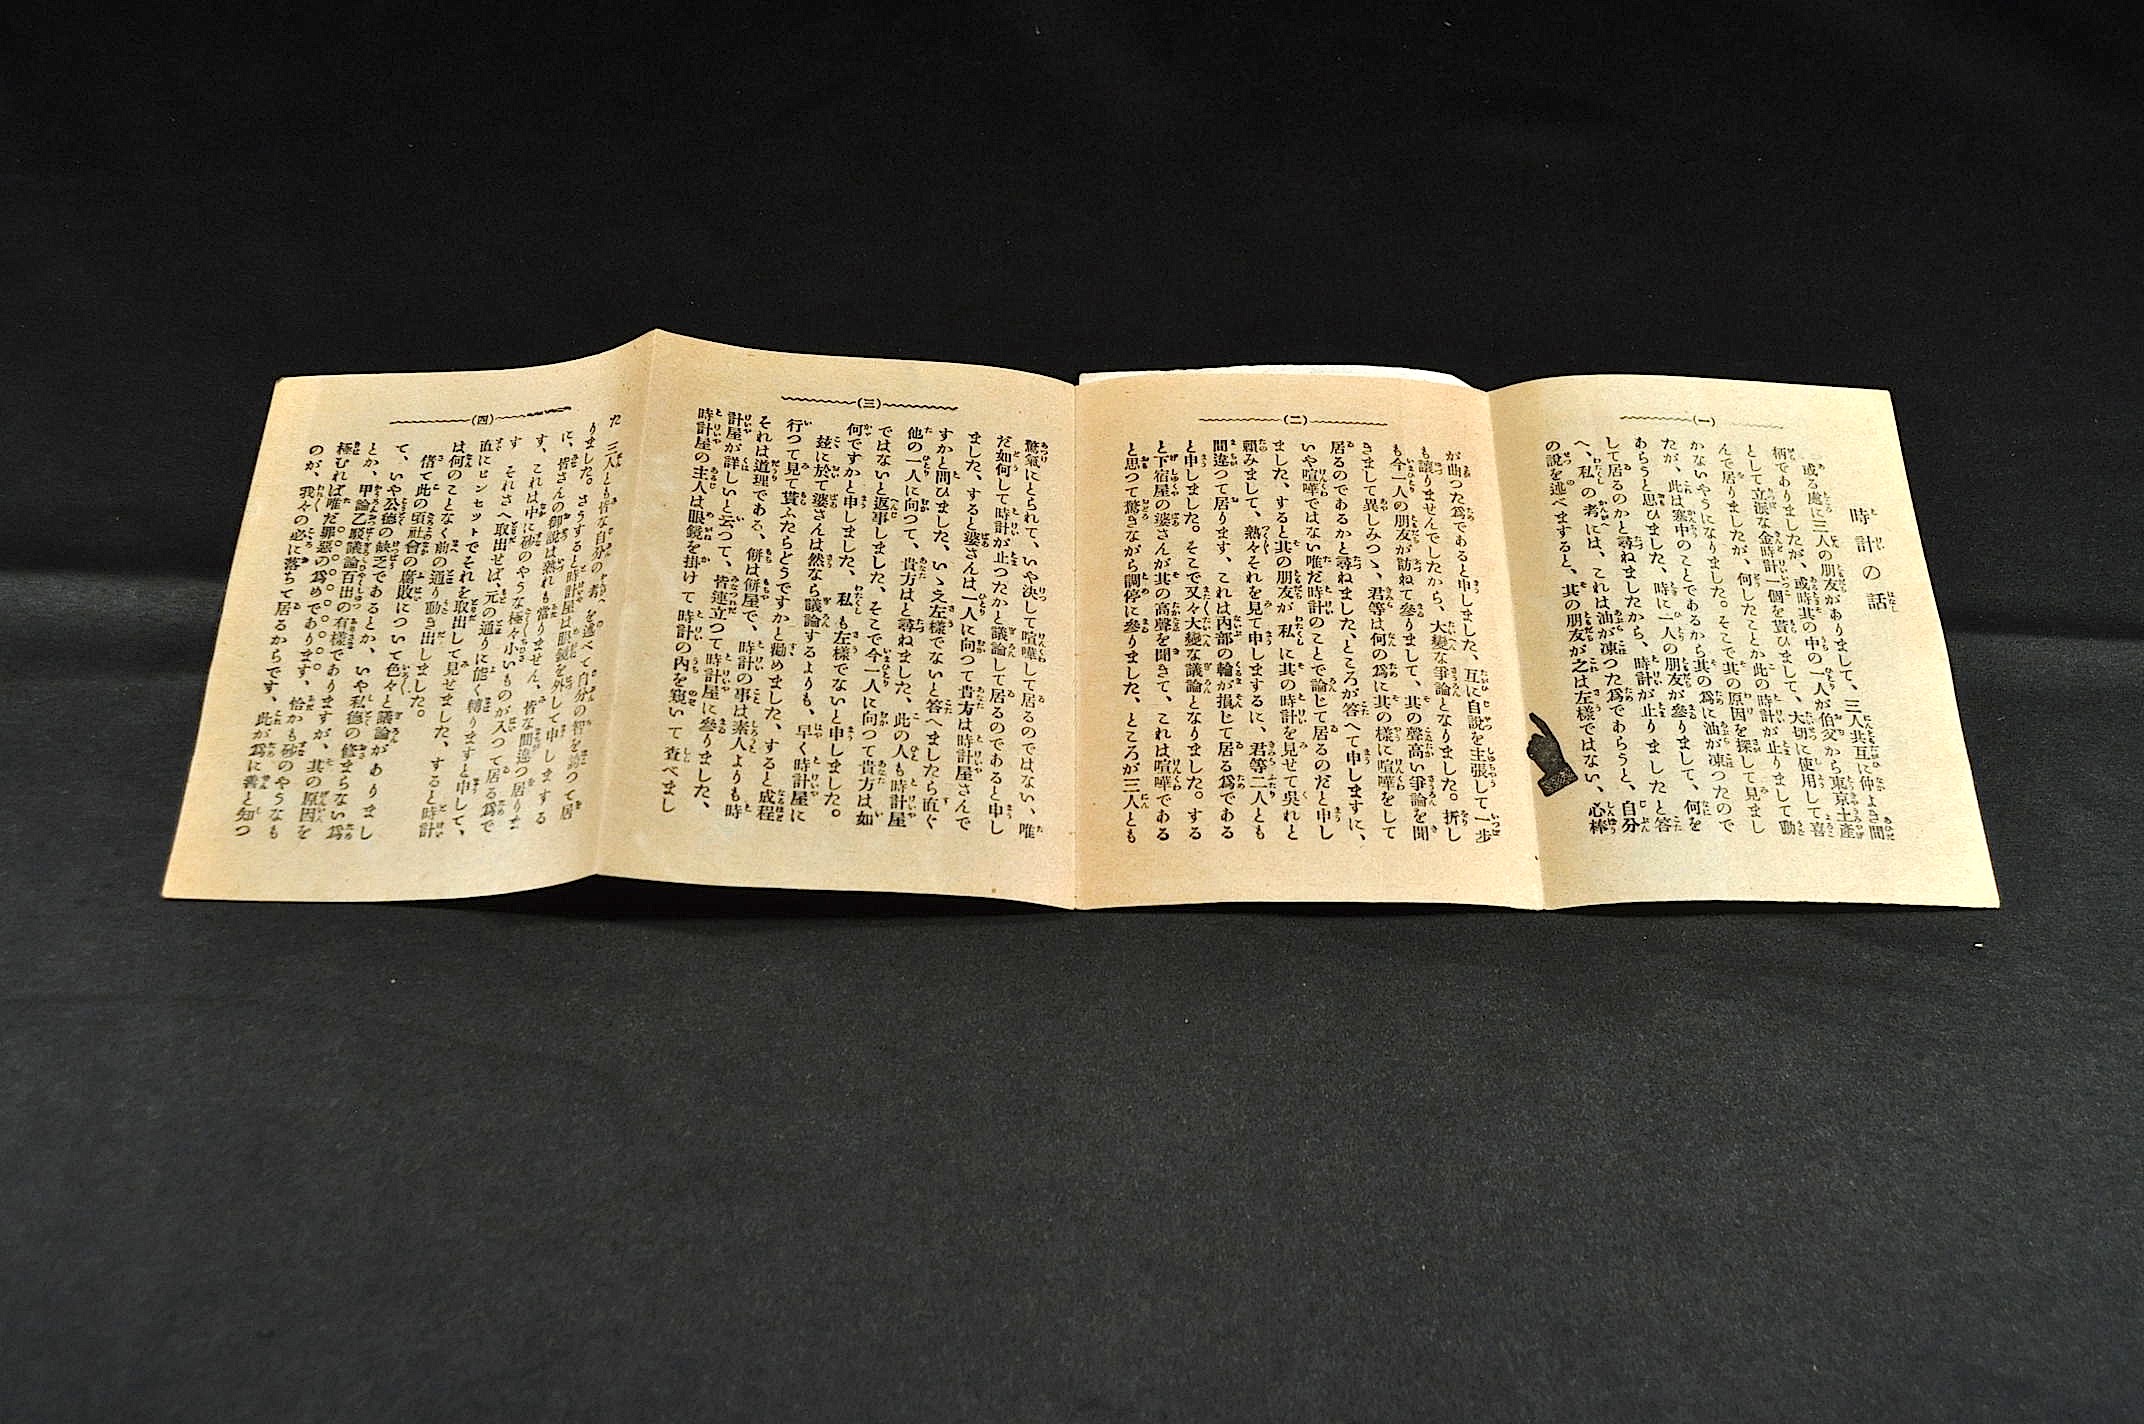 (一)
時計の話
或る處に三人の朋友がありまして、三人共互に仲よき間
柄でありましたが、或時其の中の一人が伯父から東京土產
として立派な金時計一個を貰ひまして、大切に使用して喜
んで居りましたが、何したことか此の時計が止りまして動
かないやうになりました。そこで其の原因を探して見まし
たが、此は寒中のことであるから其の爲に油が凍つたので
あらうと思ひました、時に一人の朋友が參りまして、何を
して居るのかと尋ねましたから、時計が止りましたと答
へ、私の考には、これは油が凍つた爲であらうと、自分
の說を述べますると、其の朋友が之は左樣ではない、心棒
(二)
が曲つた爲であると申しました、互に自說を主張して一步
も讓りませんでしたから、大變な爭論となりました。折し
も今一人の朋友が訪ねて參りまして、其の聲高い爭論を聞
きまして異しみつゝ、君等は何の爲に其の樣に喧嘩をして
居るのであるかと尋ねました、ところが答へて申しますに、
いや喧嘩ではない唯だ時計のことで論じて居るのだと申し
ました、すると其の朋友が私に其の時計を見せて吳れと
賴みまして、熟々それを見て申しまするに、君等二人とも
間違つて居ります、これは內部の輪が損じて居る爲である
と申しました。そこで又々大變な議論となりました。する
と下宿屋の婆さんが其の高聲を聞きて、これは喧嘩である
と思つて驚きながら調停に參りました、ところが三人とも
(三)
驚氣にとられて、いや決して喧嘩して居るのではない、唯
だ如何して時計が止つたかと議論して居るのであると申し
ました、すると婆さんは一人に向つて貴方は時計屋さんで
すかと問ひました、いゝえ左樣でないと答へましたら直ぐ
他の一人に向つて、貴方はと尋ねました、此の人も時計屋
ではないと返事しました、そこで今一人に向つて貴方は如
何ですかと申しました、私も左樣でないと申しました。
玆に於て婆さんは然なら議論するよりも、早く時計屋に
行つて見て貰ふたらどうですかと勸めました、すると成程
それは道理である、餠は餠屋で、時計の事は素人よりも時
計屋が詳しいと云つて、皆連立つて時計屋に參りました、
時計屋の主人は眼鏡を掛けて時計の內を窺いて查べまし
(四)
た 三人とも皆な自分の考を述べて自分の智を誇つて居
りました。さうすると時計屋は眼鏡を外して申しまする
に、皆さんの御說は孰れも當りません、皆な間違つ居りま
す、これは中に砂のやうな極々小いものが入つて居る爲で
す それさへ取出せば、元の通りに能く轉りますと申して、
直にピンセットでそれを取出して見せました、すると時計
は何のことなく前の通り動き出しました。
偖て此の頃社會の腐敗について色々と議論がありまし
て、いや公德の缺乏であるとか、いや私德の修まらない爲
とか、甲論乙駁議論百出の有樣でありますが、其の原因を
極むれば唯だ罪惡の爲めであります、恰かも砂のやうなも
のが、我々の心に落ちて居るからです、此が爲に善と知つ